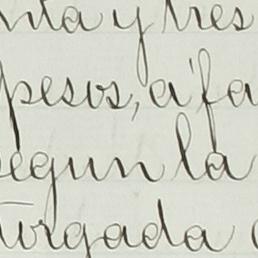 nta y tres
pesos, á fa
segun la
urgada